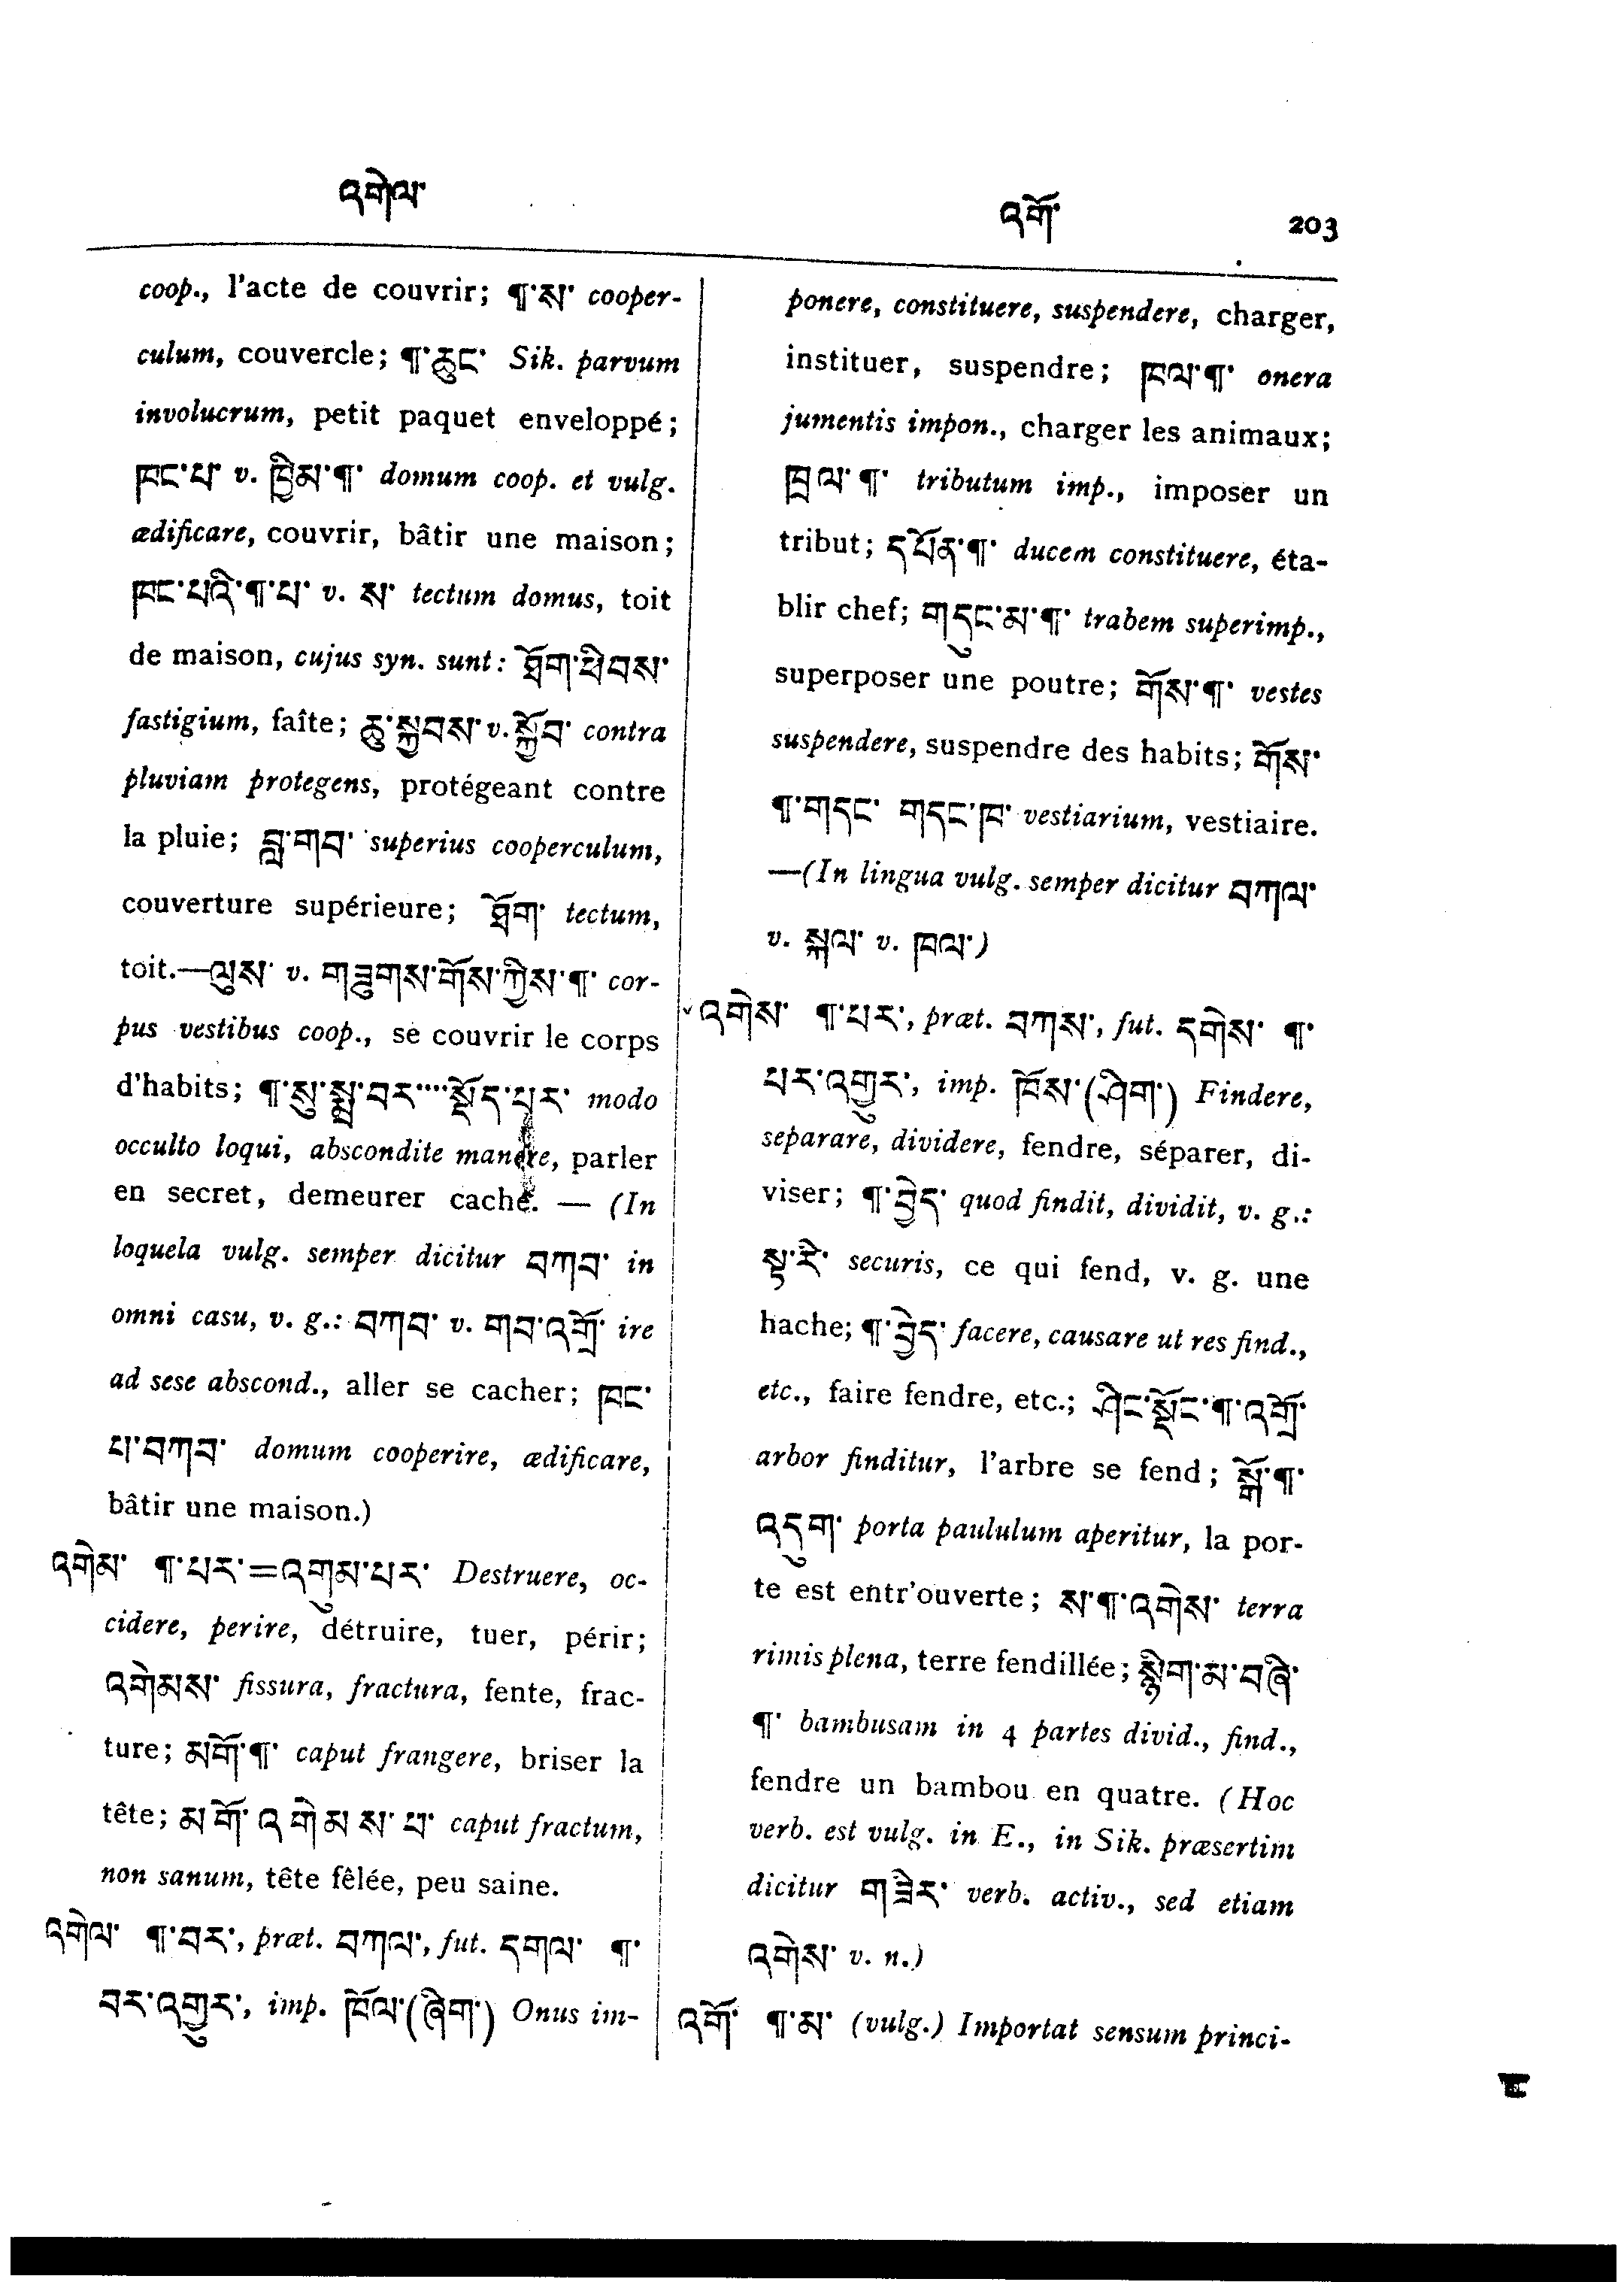 འགེལ་
འགོ་ 203
coop., l'acte de couvrir; ¶་ས་ cooper-
culum, couvercle; ¶་ཆུང་ Sik. parvum
involucrum, petit paquet enveloppé;
ཁང་པ་ v. ཁྱིམ་¶་ domum coop. et vulg.
ædificare, couvrir, bâtir une maison;
ཁང་པའི་¶་པ་ v. ས་ tectum domus, toit
de maison, cujus syn. sunt: ཐོག་ཕིབས་
fastigium, faîte; ཆུ་སྐྱབས་ v. སྐྱོབ་ contra
pluviam protegens, protégeant contre
la pluie; བླ་གབ་ superius cooperculum,
couverture supérieure; ཐོག་ tectum,
toit.—ལུས་ v. གཟུགས་གོས་ཀྱིས་¶་ cor-
pus vestibus coop., se couvrir le corps
d'habits; ¶་སུ་སྨྲ་བར་····སྡོད་པར་ modo
occulto loqui, abscondite manere, parler
en secret, demeurer caché. — (In
loquela vulg. semper dicitur བཀབ་ in
omni casu, v. g.: བཀབ་ v. གབ་འགྲོ་ ire
ad sese abscond., aller se cacher; ཁང་
པ་བཀབ་ domum cooperire, ædificare,
bâtir une maison.)
འགེམ་ ¶་པར་=འགུམ་པར་ Destruere, oc-
cidere, perire, détruire, tuer, périr;
འགེམས་ fissura, fractura, fente, frac-
ture; མགོ་¶་ caput frangere, briser la
tête; མགོ་འགེམས་པ་ caput fractum,
non sanum, tête fêlée, peu saine.
འགེལ་ ¶་བར་, præt. བཀལ་, fut. དགལ་ ¶་
བར་འགྱུར་, imp. ཁོལ་(ཞིག་) Onus im-
ponere, constituere, suspendere, charger,
instituer, suspendre; ཁལ་¶་ onera
jumentis impon., charger les animaux;
ཁྲལ་¶་ tributum imp., imposer un
tribut; དཔོན་¶་ ducem constituere, éta-
blir chef; གདུང་མ་¶་ trabem superimp.,
superposer une poutre; གོས་¶་ vestes
suspendere, suspendre des habits; གོས་
¶་གདང་ གདང་ཁ་ vestiarium, vestiaire.
—(In lingua vulg. semper dicitur བཀལ་
v. སྐལ་ v. ཁལ་)
འགེས་ ¶་པར་, præt. བཀས་, fut. དགེས་ ¶་
པར་འགྱུར་, imp. ཁོས་(ཤིག་) Findere,
separare, dividere, fendre, séparer, di-
viser; ¶་བྱེད་ quod findit, dividit, v. g.:
སྟ་རེ་ securis, ce qui fend, v. g. une
hache; ¶་བྱེད་ facere, causare ut res find.,
etc., faire fendre, etc.; ཤིང་སྡོང་¶་འགྲོ་
arbor finditur, l'arbre se fend; སྒོ་¶་
འདུག་ porta paululum aperitur, la por-
te est entr'ouverte; ས་¶་འགེས་ terra
rimis plena, terre fendillée; སྙིག་མ་བཞི་
¶་ bambusam in 4 partes divid., find.,
fendre un bambou en quatre. (Hoc
verb. est vulg. in E., in Sik. præsertim
dicitur གཟེར་ verb. activ., sed etiam
འགེས་ v. n.)
འགོ་ ¶་མ་ (vulg.) Importat sensum princi-